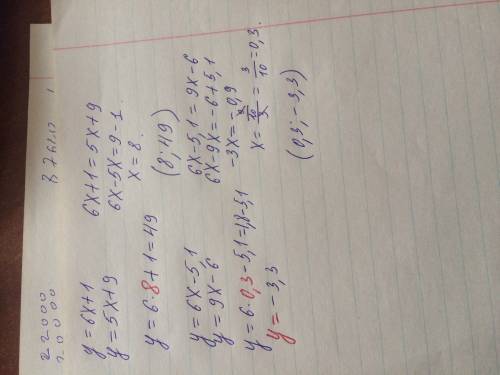 22000
20000
y = 6x+1
y = 5x+9
6x+1 = 5x+9
6x-5x = 9-1
x = 8.
y = 6·8+1 = 49
(8; 49)
y = 6x-5,1
y = 9x-6
6x-5,1 = 9x-6
6x-9x = -6+5,1
-3x = -0,9
y = 6·0,3-5,1 = 1,8-5,1
y = -3,3
= 3/10 = 0,3.
(0,3; -3,3)